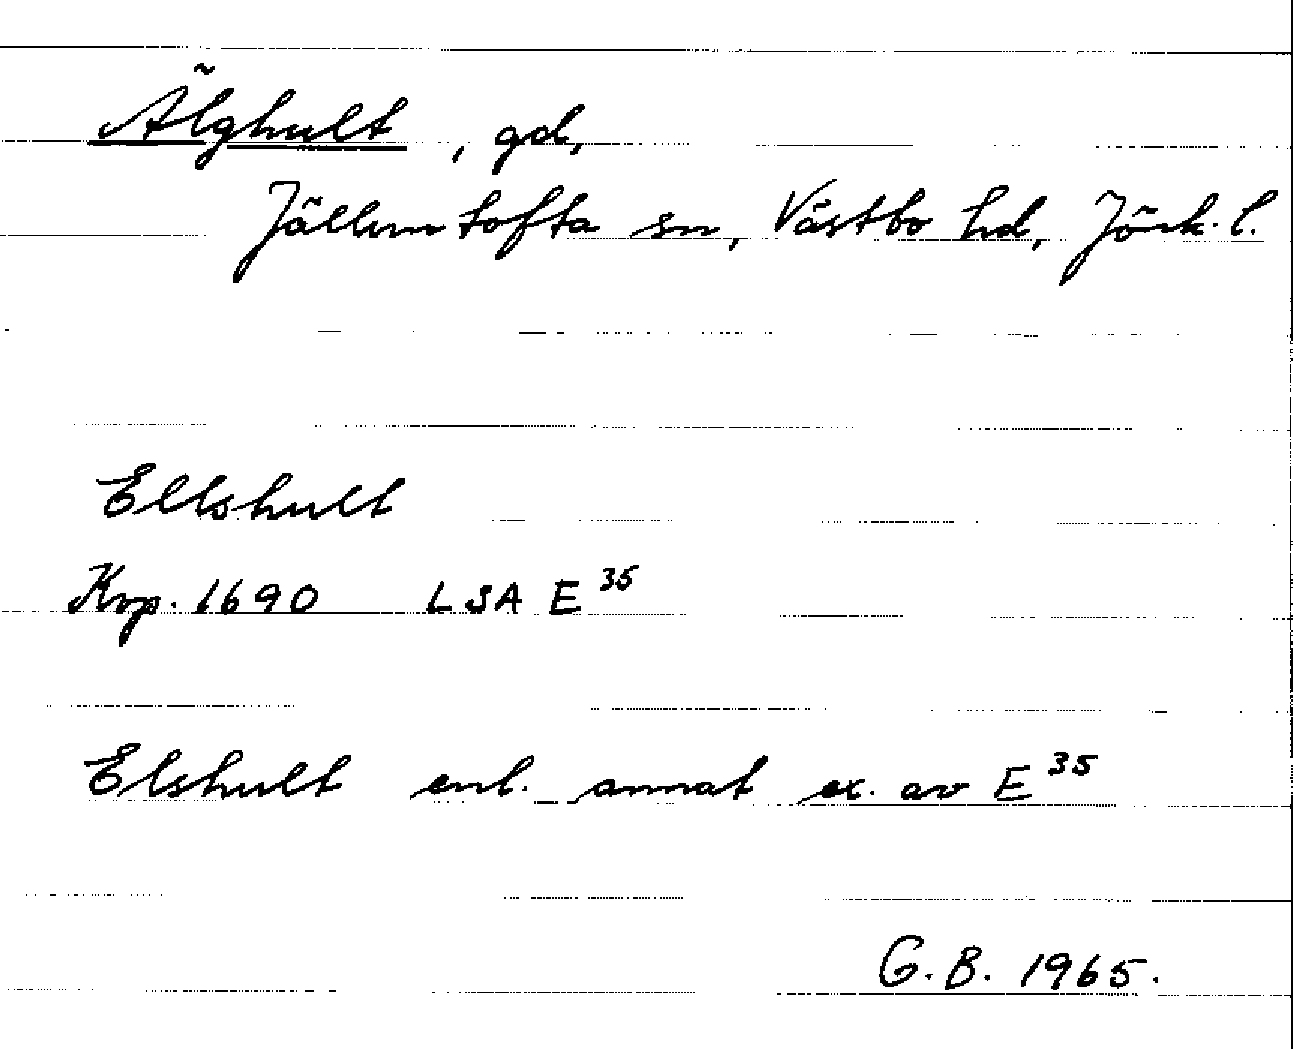 Älghult, gd,
Jälluntofta sn, Västbo hd, Jönk. l.
Ellshult
Krp. 1690 LSA E 35
Elshult enl. annat ex. av E 35
G. B. 1965.